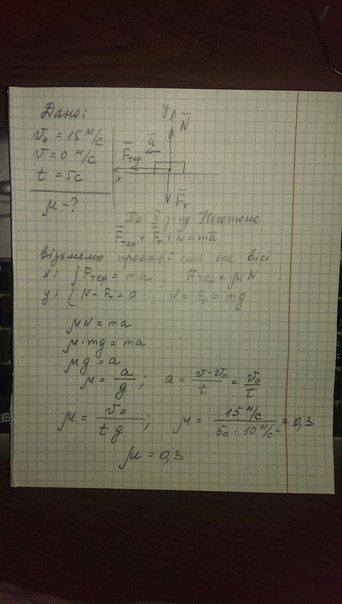 Дано:
v₀ = 15 м/с
v = 0 м/с
t = 5с
μ - ?
y
N̅
a̅
F̅тер
x
F̅т
По II з-ну Ньютона
F̅тер + F̅т + N̅ = ma̅
візьмемо проекції на вісі
x: Fтер = ma, Fтер = μN
y: N - Fт = 0, N = Fт = mg
μN = ma
μ·mg = ma
μg = a
μ = a/g; a = (v - v₀)/t = v₀/t
μ = v₀/(t g); μ = 15 м/с / (5с · 10 м/с²) = 0,3
μ = 0,3